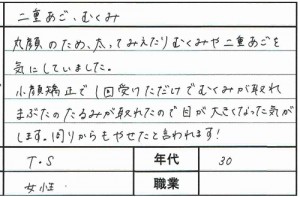 二重あご、むくみ
丸顔のため、太ってみえたりむくみや二重あごを
気にしていました。
小顔矯正で1回受けただけでむくみが取れ
まぶたのたるみが取れたので目が大きくなった気が
します。周りからもやせたと言われます!
T.S 年代 30
女性 職業